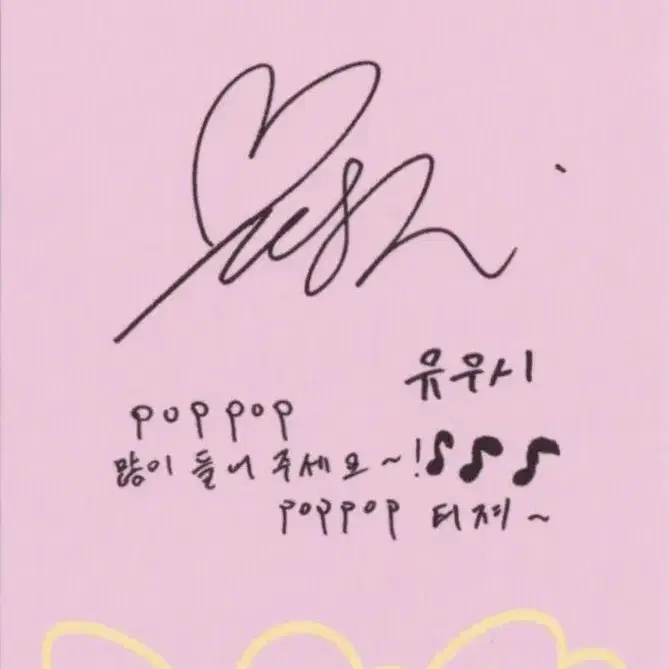 Yushi
유우시
pop pop
많이 들어 주세요~!♪♪♪
pop pop 터져~